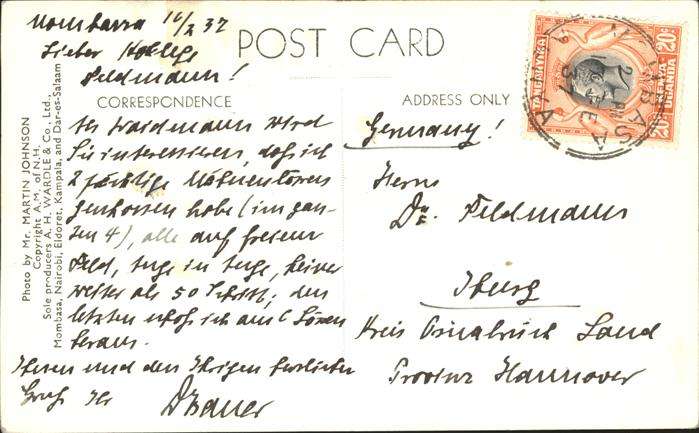 Mombassa 16/2 37
Lieber Kollege
Feldmann!
POST CARD
CORRESPONDENCE
ADDRESS ONLY
Als Waidmann wird
Sie interessieren, daß ich
2 prächtige Mähnenlöwen
geschossen habe (im gan-
zen 4), alle auf freiem
Feld, Auge in Auge, keiner
weiter als 50 Schritt; den
letzten schoß ich aus 6 Löwen
heraus.
Ihnen und den Ihrigen herzlichen
Gruß Ihr
Germany!
Herrn
Dr. Feldmann
Iburg
Kreis Osnabrück Land
Provinz Hannover
Photo by Mr. MARTIN JOHNSON
Copyright A.M. of N.H.
Sole producers A. H. WARDLE & Co., Ltd.
Mombasa, Nairobi, Eldoret, Kampala, and Dar-es-Salaam
TANGANYIKA
KENYA
UGANDA
20c
20c
MOMBASA
2 PM
FE
37